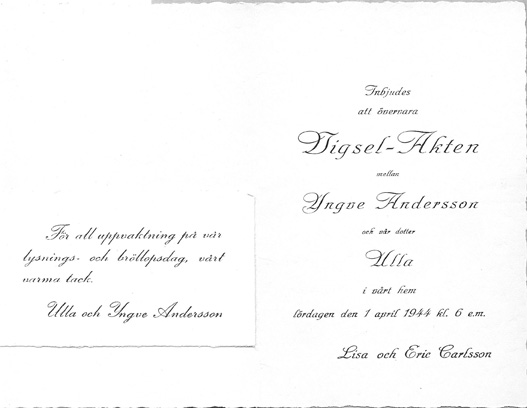 För all uppvaktning på vår
lysnings- och bröllopsdag, vårt
varma tack.
Ulla och Yngve Andersson
Inbjudes
att övervara
Vigsel-Akten
mellan
Yngve Andersson
och vår dotter
Ulla
i vårt hem
lördagen den 1 april 1944 kl. 6 e.m.
Lisa och Eric Carlsson